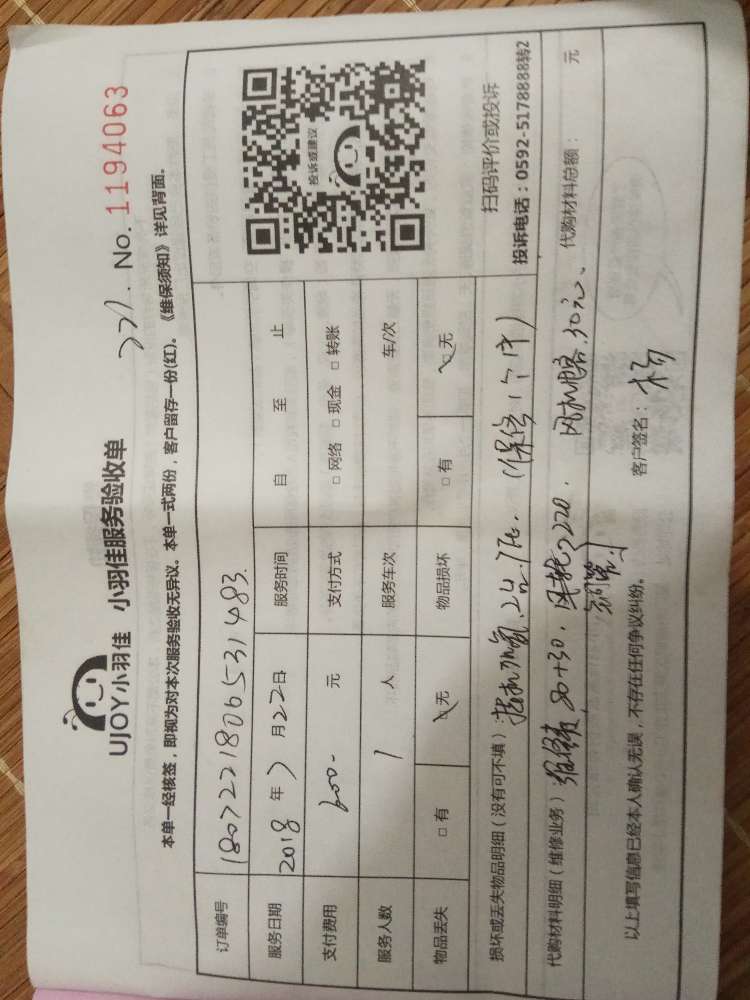 UJOY小羽佳 小羽佳服务验收单
No. 1194063
本单一经核签，即视为对本次服务验收无异议。本单一式两份，客户留存一份(红)。《维保须知》详见背面。
订单编号 1807221806531483
服务日期 2018年7月22日 服务时间 自 至 止
支付费用 600- 元 支付方式 □网络 □现金 □转账
服务人数 1 人 服务车次 车/次
物品丢失 □有 □无 物品损坏 □有 □无
投诉或建议
扫码评价或投诉
投诉电话：0592-5178888转2
损坏或丢失物品明细（没有可不填）：
代购材料明细（维修业务） 80+30. 220. 风机电容.30元、 代购材料总额： 元
以上填写信息已经本人确认无误，不存在任何争议纠纷。 客户签名：杨